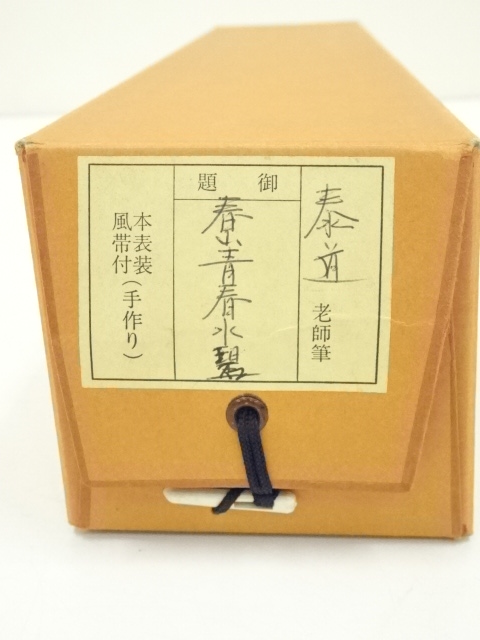 泰道
老師筆
御題
春山青春水碧
本表装
風帯付(手作り)